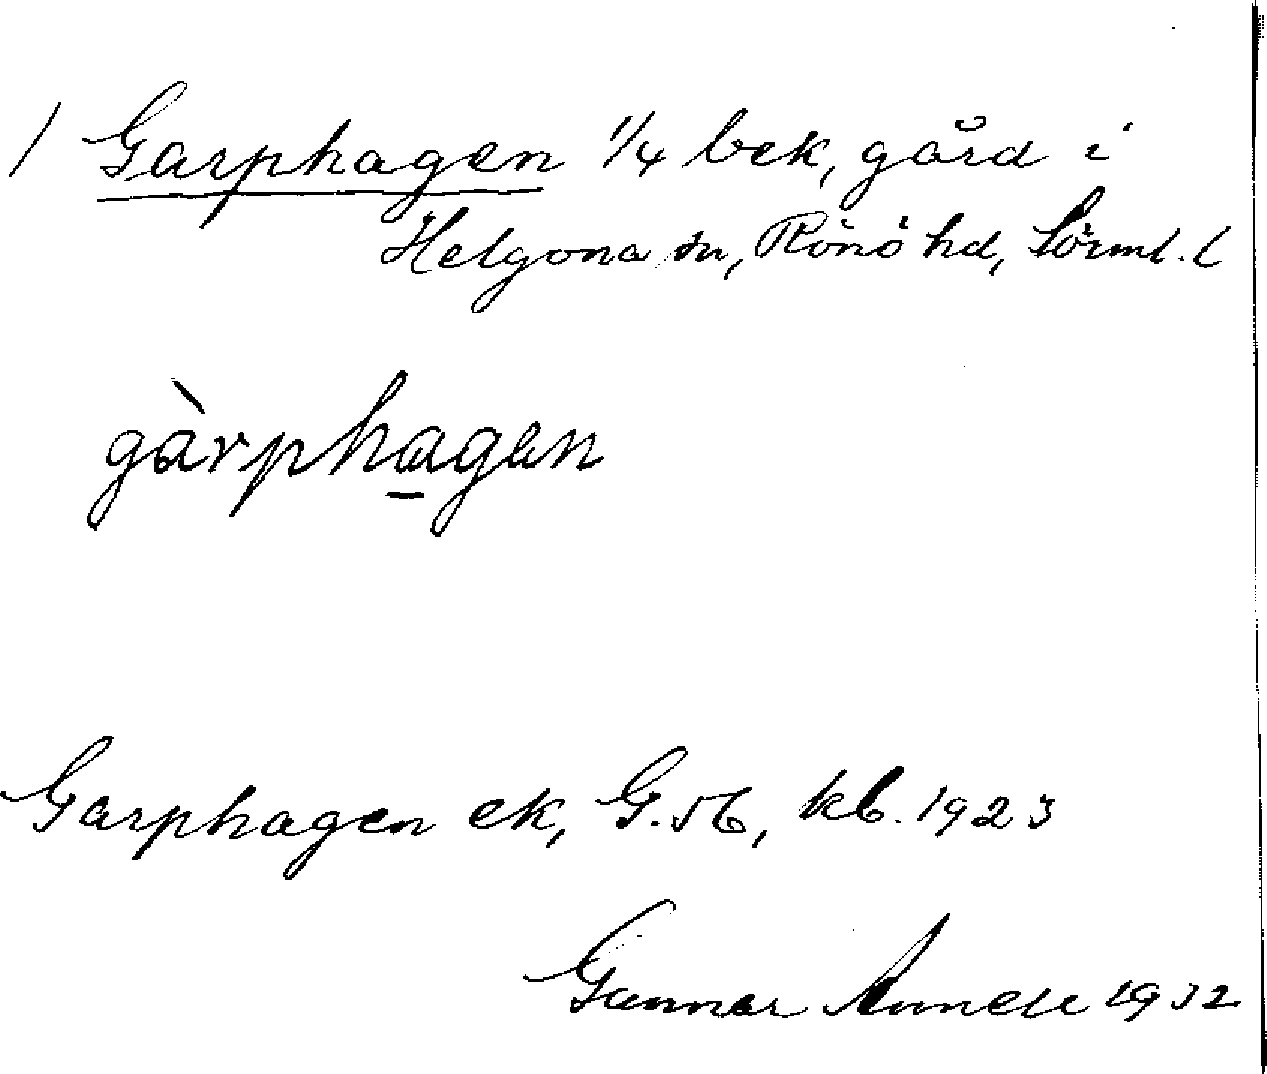 / Garphagen 1/4 bek, gård i
Helgona sn, Rönö hd, Sörml. l
gàrphagen
Garphagen ek, G. 56, kb. 1923
Gunnar 1932